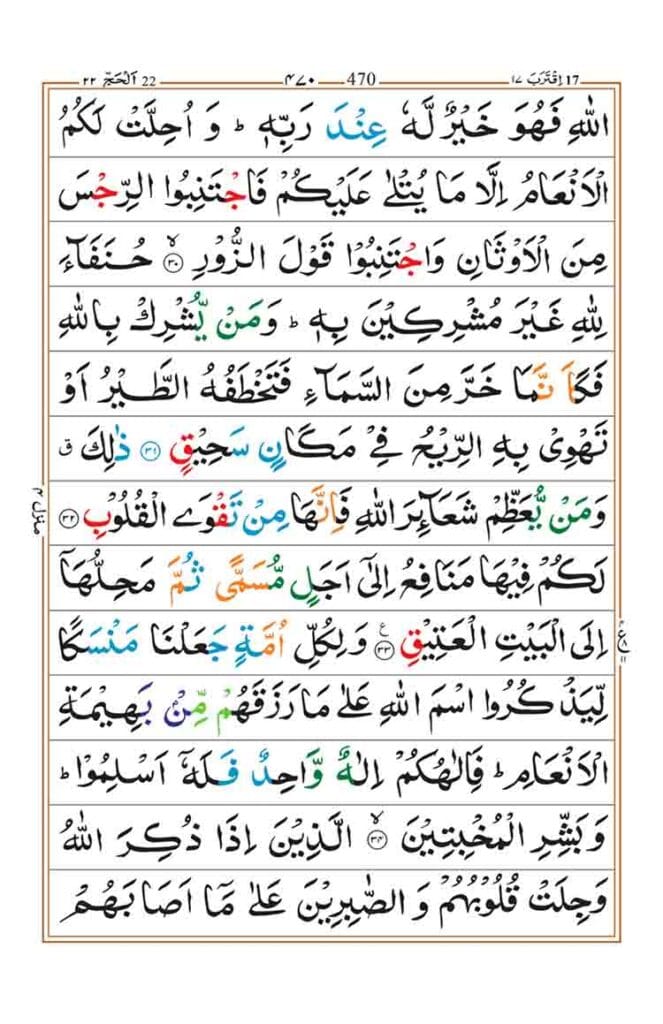 اِقْتَرَبَ ١٧ 17 470 ٤٧٠ 22 اَلْحَجّ ٢٢
اللّٰهِ فَهُوَ خَيْرٌ لَّهٗ عِنْدَ رَبِّهٖ ؕ وَ اُحِلَّتْ لَكُمُ
الْاَنْعَامُ اِلَّا مَا يُتْلٰى عَلَيْكُمْ فَاجْتَنِبُوا الرِّجْسَ
مِنَ الْاَوْثَانِ وَاجْتَنِبُوْا قَوْلَ الزُّوْرِ ۙ‏ ﴿۳۰﴾ حُنَفَآءَ
لِلّٰهِ غَيْرَ مُشْرِكِيْنَ بِهٖ ؕ وَمَنْ يُّشْرِكْ بِاللّٰهِ
فَكَاَنَّمَا خَرَّ مِنَ السَّمَآءِ فَتَخْطَفُهُ الطَّيْرُ اَوْ
تَهْوِىْ بِهِ الرِّيْحُ فِىْ مَكَانٍ سَحِيْقٍ ﴿۳۱﴾ ذٰلِكَ ق
وَمَنْ يُّعَظِّمْ شَعَآئِرَ اللّٰهِ فَاِنَّهَا مِنْ تَقْوَى الْقُلُوْبِ ﴿۳۲﴾
منزل ٤
لَكُمْ فِيْهَا مَنَافِعُ اِلٰٓى اَجَلٍ مُّسَمًّى ثُمَّ مَحِلُّهَاۤ
اِلَى الْبَيْتِ الْعَتِيْقِ ﴿۳۳﴾ ع وَلِكُلِّ اُمَّةٍ جَعَلْنَا مَنْسَكًا
لِّيَذْكُرُوا اسْمَ اللّٰهِ عَلٰى مَا رَزَقَهُمْ مِّنْۢ بَهِيْمَةِ
الْاَنْعَامِ ؕ فَاِلٰهُكُمْ اِلٰهٌ وَّاحِدٌ فَلَهٗۤ اَسْلِمُوْا ؕ
وَبَشِّرِ الْمُخْبِتِيْنَ ۙ‏ ﴿۳۴﴾ الَّذِيْنَ اِذَا ذُكِرَ اللّٰهُ
وَجِلَتْ قُلُوْبُهُمْ وَ الصّٰبِرِيْنَ عَلٰى مَاۤ اَصَابَهُمْ